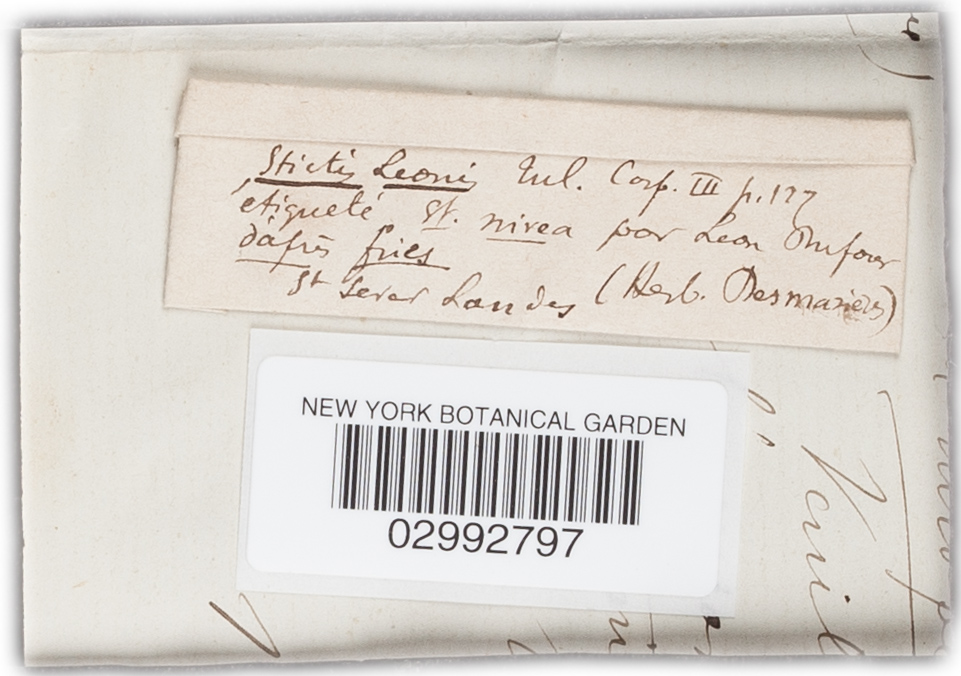 Stictis Leonis Tul. Carp. III p. 127
étiqueté St. nivea par Leon Dufour
d'après fries
St Sever Landes (Herb. Desmazieres)
NEW YORK BOTANICAL GARDEN
02992797